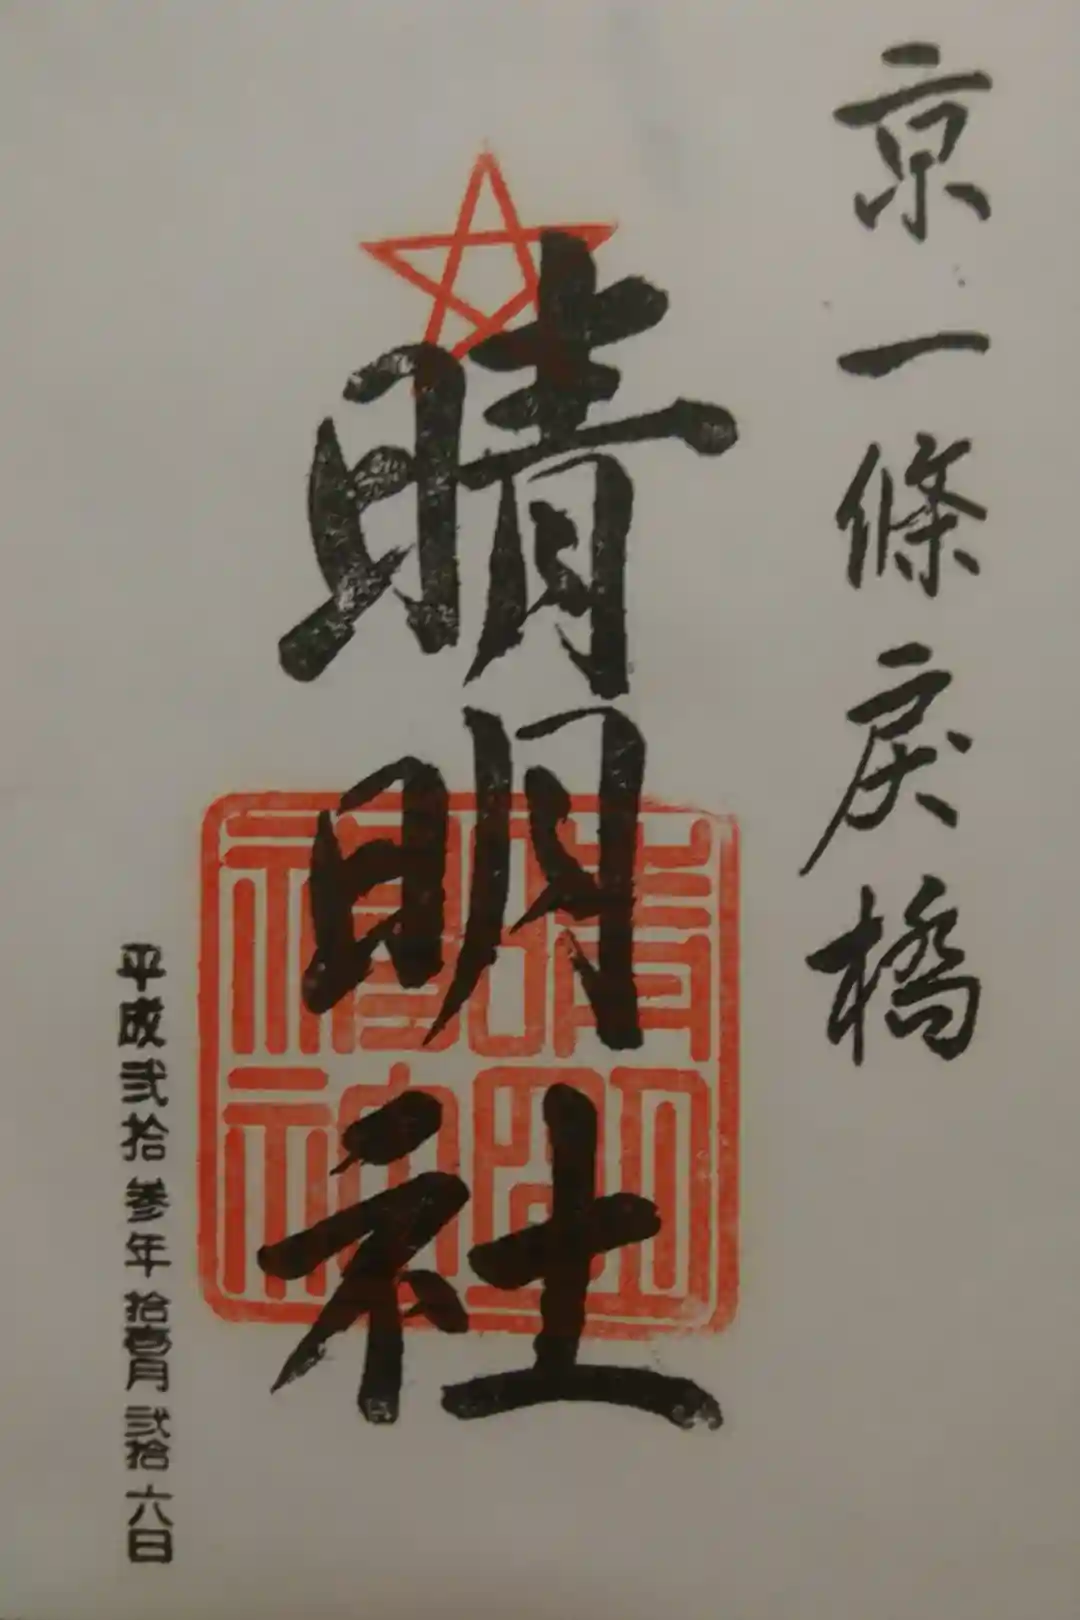 京一條戻橋
晴明社
晴明神社
平成弐拾参年拾壱月弐拾六日